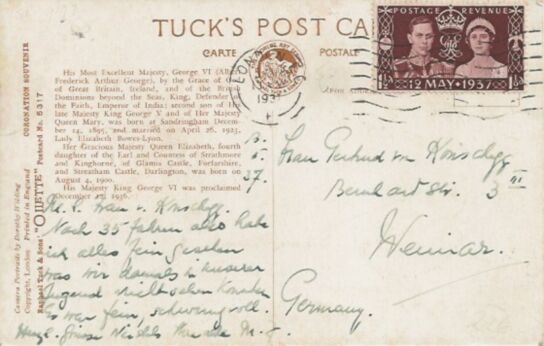 TUCK'S POST CA
CARTE POSTALE
POSTAGE REVENUE
1½ 12 MAY · 1937 1½
CORONATION SOUVENIR
Postcard No. 5317
"OILETTE"
Raphael Tuck & Sons'
Copyright, London Printed in England
Camera Portraits by Dorothy Wilding
His Most Excellent Majesty, George VI (Albert
Frederick Arthur George), by the Grace of
of Great Britain, Ireland, and of the British
Dominions beyond the Seas, King, Defender of
the Faith, Emperor of India; second son of
late Majesty King George V and of Her Majesty
Queen Mary, was born at Sandringham
14, 1895, and married on April 26, 1923,
Lady Elizabeth Bowes-Lyon.
Her Gracious Majesty Queen Elizabeth, fourth
daughter of the Earl and Countess of Strathmore
and Kinghorne, of Glamis Castle, Forfarshire,
and Streatham Castle, Darlington, was born on
August 4, 1900.
His Majesty King George VI was proclaimed
12, 1936.
37
Frau Gertrud von
Bernhard Str. 3 III
Weimar.
Germany.
Frau v.
Nach 35 Jahren also habe
ich alles fein gesehen
was wir damals in unserer
Jugend nicht sehen konnten
Es war fein, schwungvoll.
Herzl. Grüsse